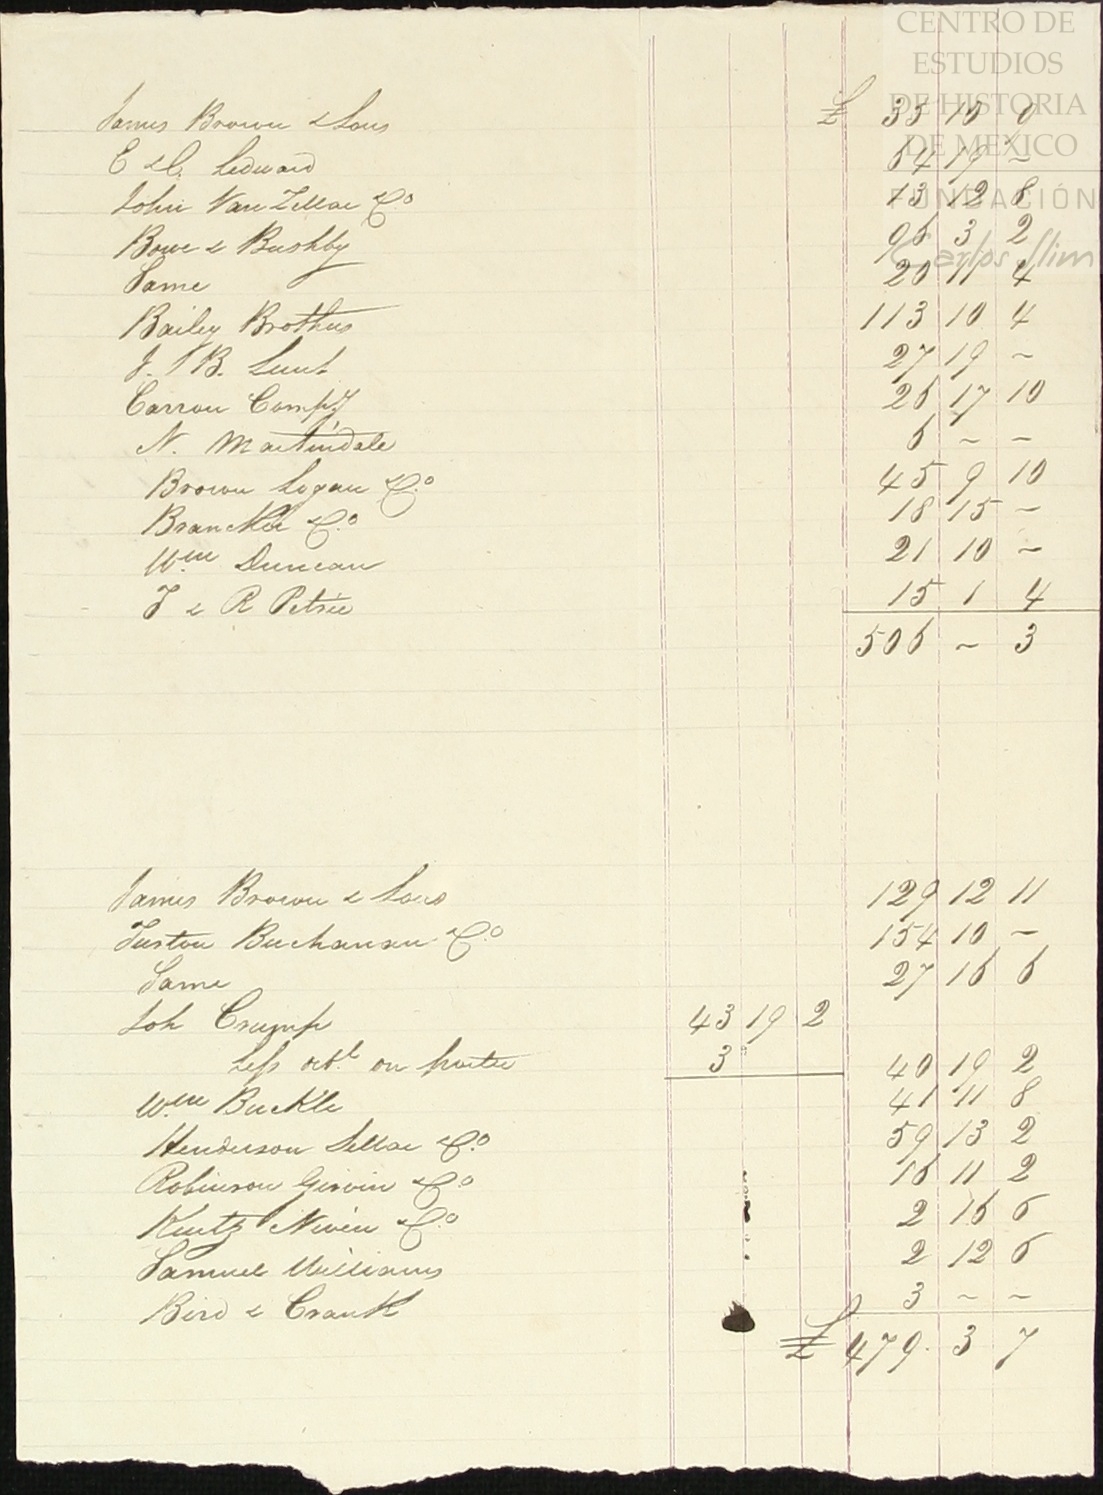 CENTRO DE
ESTUDIOS
DE HISTORIA
DE MEXICO
FUNDACIÓN
Carlos Slim
James Brown & Sons £ 35 10 9
E & C. Leduard 64 19 ~
John Van Zellar & Co 13 12 8
Bowe & Bushby 96 3 2
Same 20 11 4
Bailey Brothers 113 10 4
J. B. Lunt 27 19 ~
Carron Compy 26 17 10
N. Martindale 6 ~ ~
Brown Logan & Co 45 9 10
Brancker & Co 18 15 ~
Wm Duncan 21 10 ~
J & R Petrie 15 1 4
506 ~ 3
James Brown & Sons 129 12 11
Turton Buchanan & Co 154 10 ~
Same 27 16 6
Joh Crump 43 19 2
Less on 3 40 19 2
Wm Buckle 41 11 8
Henderson Sellar & Co 59 13 2
Robinson Girvin & Co 16 11 2
Kurtz Niven & Co 2 16 6
Samuel Williams 2 12 6
Bird & Crank 3 ~ ~
£ 479. 3 7